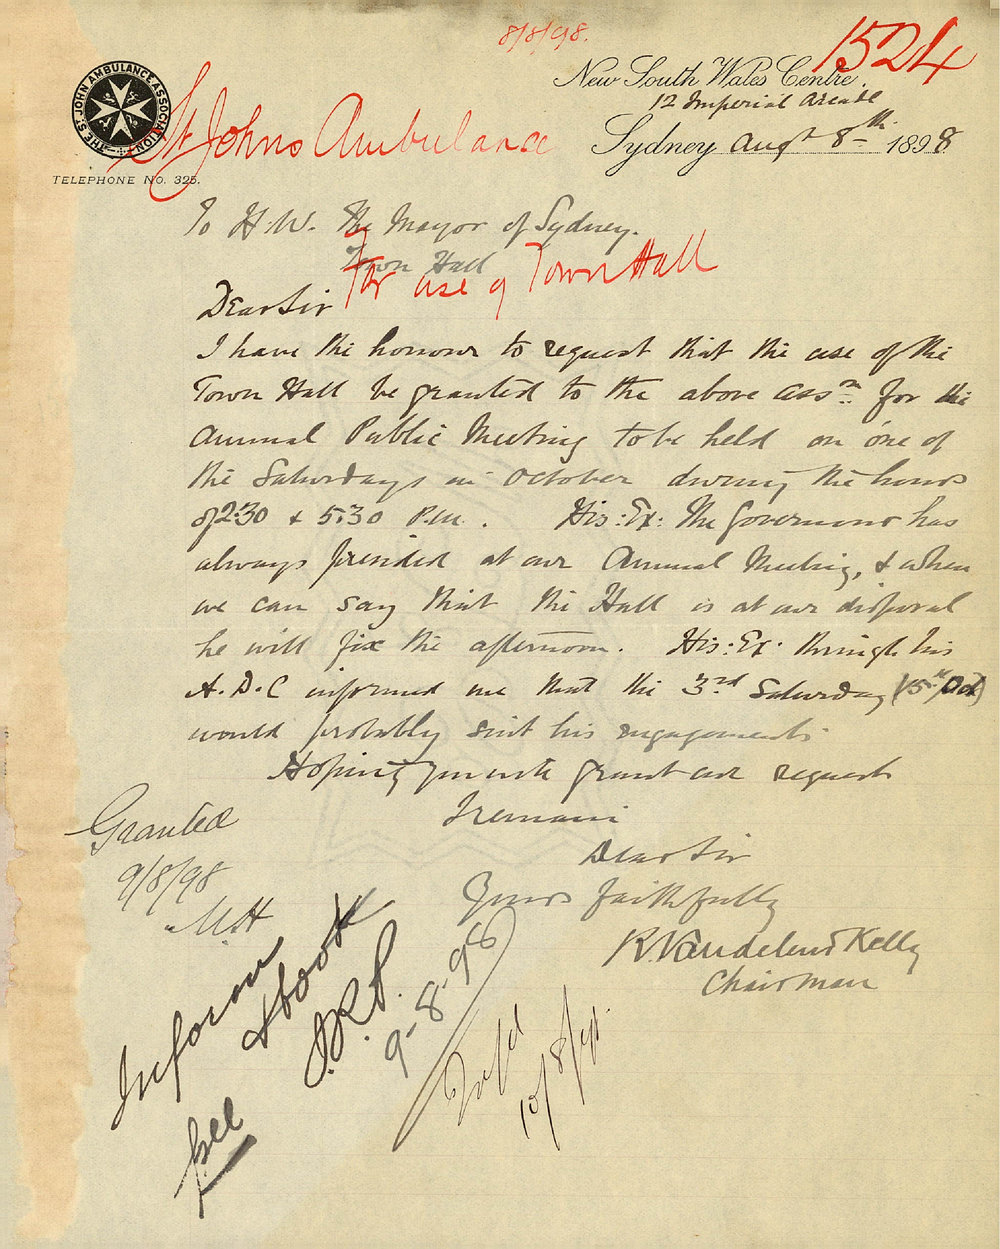 8/8/98.
1524
New South Wales Centre,
12 Imperial Arcade
THE ST JOHN AMBULANCE ASSOCIATION
St Johns Ambulance
Sydney Augt 8th 1898
TELEPHONE NO. 325.
To H.W. The Mayor of Sydney.
Town Hall
For use of Town Hall
Dear Sir
I have the honour to request that the use of the
Town Hall be granted to the above assn. for the
Annual Public Meeting to be held on one of
the Saturdays in October during the hours
of 2.30 & 5.30 P.M. His: Ex: The Governor has
always presided at our Annual Meeting, & when
we can say that the Hall is at our disposal
he will fix the afternoon. His: Ex: through his
A.D.C informed me that the 3rd Saturday (15th Oct)
would probably suit his engagements.
Hoping you will grant our request
I remain
Dear Sir
Yours faithfully
R. Vandeleur Kelly
Chairman
Granted
9/8/98
M.H
Inform
& book
9-8-98
10/8/98.